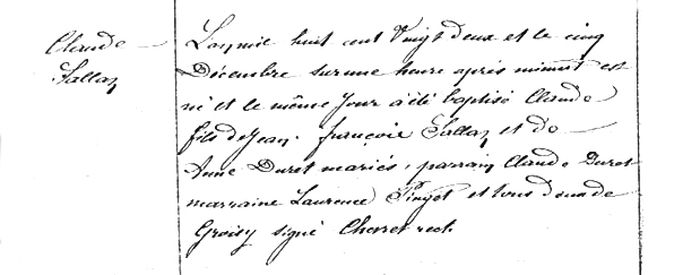 Claude
Sallaz
L'an mil huit cent Vingt deux et le cinq
Décembre sur une heure après minuit est
né et le même jour a été baptisé Claude
fils de Jean. françois Sallaz et de
Anne Duret mariés, parrain Claude Duret
marraine Laurence Pinget et tous deux de
Groisy signé rect.